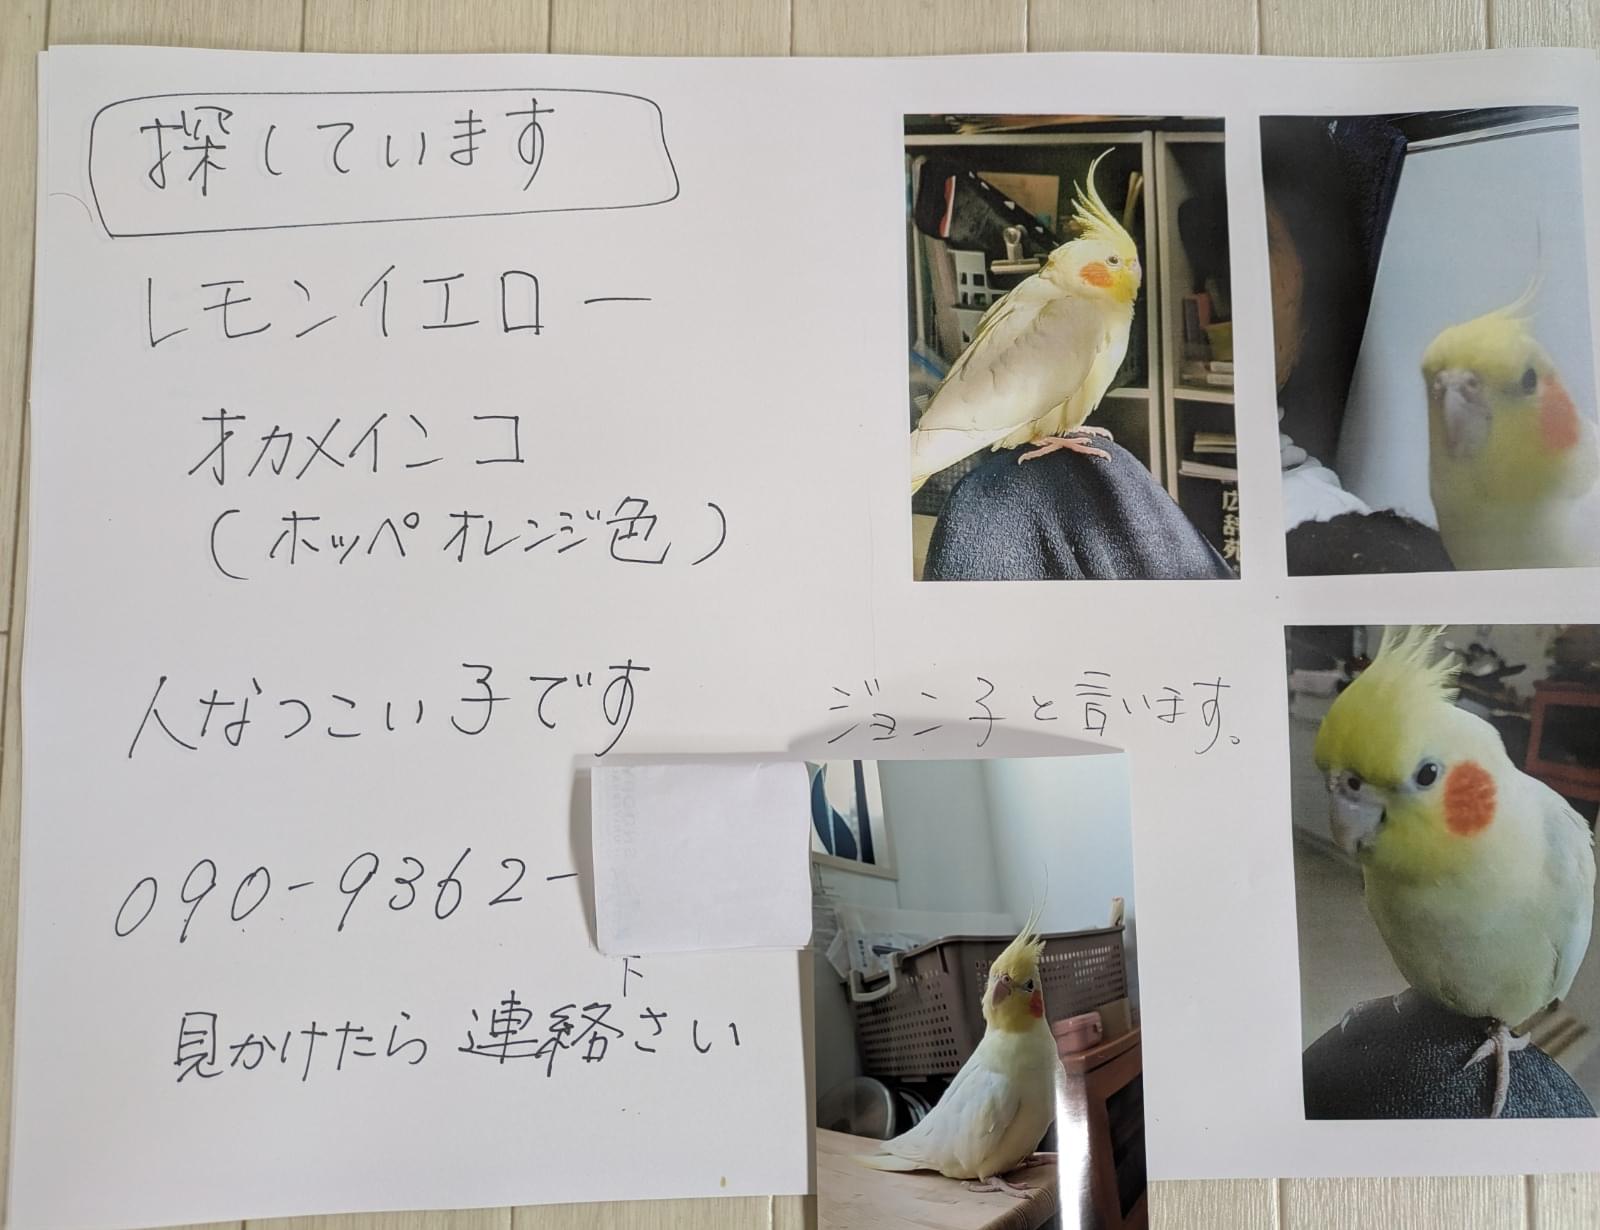 探しています
レモンイエロー
オカメインコ
(ホッペオレンジ色)
人なつこい子です
ジョン子と言います。
090-9362-
下
見かけたら連絡さい
広辞苑